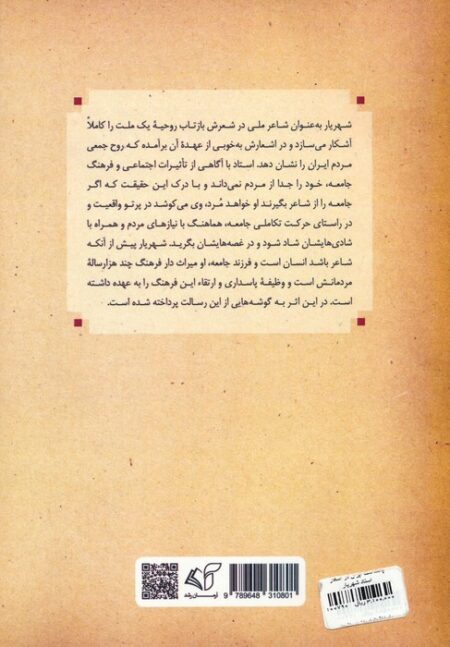 شهریار به‌عنوان شاعر ملی در شعرش بازتاب روحیهٔ یک ملت را کاملاً
آشکار می‌سازد و در اشعارش به‌خوبی از عهدهٔ آن برآمده که روح جمعی
مردم ایران را نشان دهد. استاد با آگاهی از تأثیرات اجتماعی و فرهنگ
جامعه، خود را جدا از مردم نمی‌داند و با درک این حقیقت که اگر
جامعه را از شاعر بگیرند او خواهد مُرد، وی می‌کوشد در پرتو واقعیت و
در راستای حرکت تکاملی جامعه، هماهنگ با نیازهای مردم و همراه با
شادی‌هایشان شاد شود و در غصه‌هایشان بگرید. شهریار پیش از آنکه
شاعر باشد انسان است و فرزند جامعه، او میراث دار فرهنگ چند هزارسالهٔ
مردمانش است و وظیفهٔ پاسداری و ارتقاء این فرهنگ را به عهده داشته
است. در این اثر به گوشه‌هایی از این رسالت پرداخته شده است.
آرمان رشد
9 789648 310801
استاد شهریار